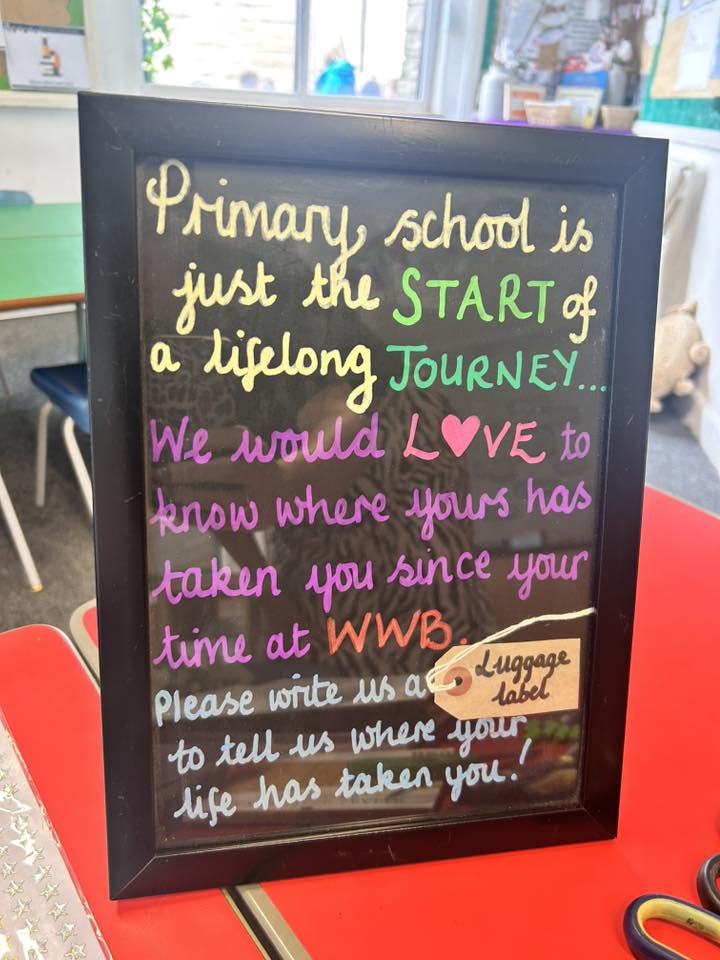 Primary school is
just the START of
a lifelong JOURNEY...
We would L♥VE to
know where yours has
taken you since your
time at WWB.
Please write us a Luggage
label
to tell us where your
life has taken you!